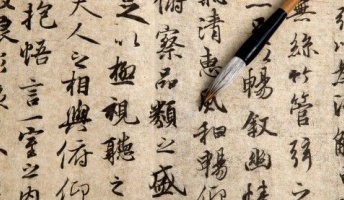 無絲竹管弦之
足以暢敘幽情
清惠風和暢仰
俯察品類之盛
足以極視聽之
夫人之相與俯仰
抱悟言一室之內